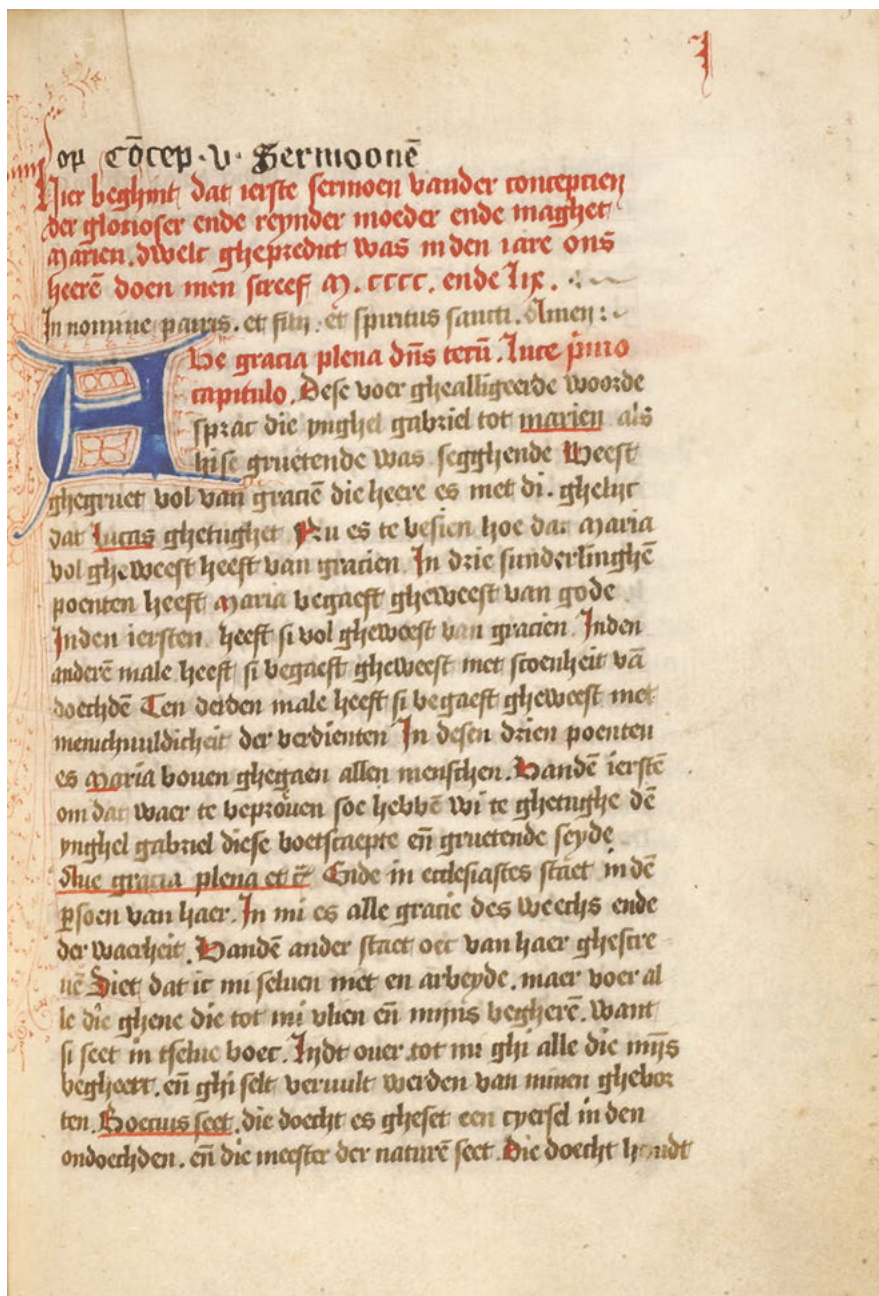 I
op Cōcep · v · Sermoonē
Hier beghint dat ierste sermoen vander conceptien
der glorioser ende reynder moeder ende maghet
Marien . dwelc ghepredict was inden iare ons
heerē doen men screef M . CCCC . ende lix .
In nomine patris . et filii . et spiritus sancti . Amen :
Ave gracia plena dn̄s tecū . Luce p̄mo
capitulo . Dese voer ghealligeerde woorde
sprac die ynghel gabriel tot marien als
hise gruetende was segghende Weest
ghegruet vol van graciē die heere es met di . ghelijc
dat Lucas ghetughet Nu es te besien hoe dat Maria
vol gheweest heeft van gracien . In drie sunderlinghē
poenten heeft Maria begaeft gheweest van gode
Inden iersten heeft si vol gheweest van gracien . Inden
anderē male heeft si begaeft gheweest met scoenheit vā
doechdē Ten derden male heeft si begaeft gheweest met
menichvuldicheit der verdienten In desen drien poenten
es Maria boven ghegaen allen menschen . Vandē ierstē
om dat waer te beproeven soe hebbē wi te ghetughe dē
ynghel gabriel diese boetscaepte en̄ gruetende seyde
Aue gracia plena et c̄ Ende in ecclesiastes staet in dē
p̱soen van haer . In mi es alle gracie des weechs ende
der waerheit . Vandē ander staet oec van haer ghescre
uē Siet dat ic mi seluen met en arbeyde . maer voer al
le die ghene die tot mi vlien en̄ mijns begherē . Want
si seet in tselue boec . Lijdt ouer tot mi ghi alle die mijs
begheert . en̄ ghi selt veruult werden van minen ghebor
ten . Boecius seet . die doecht es gheset een cyersel in den
ondoechden . en̄ die meester der naturē seet . Die doecht houdt